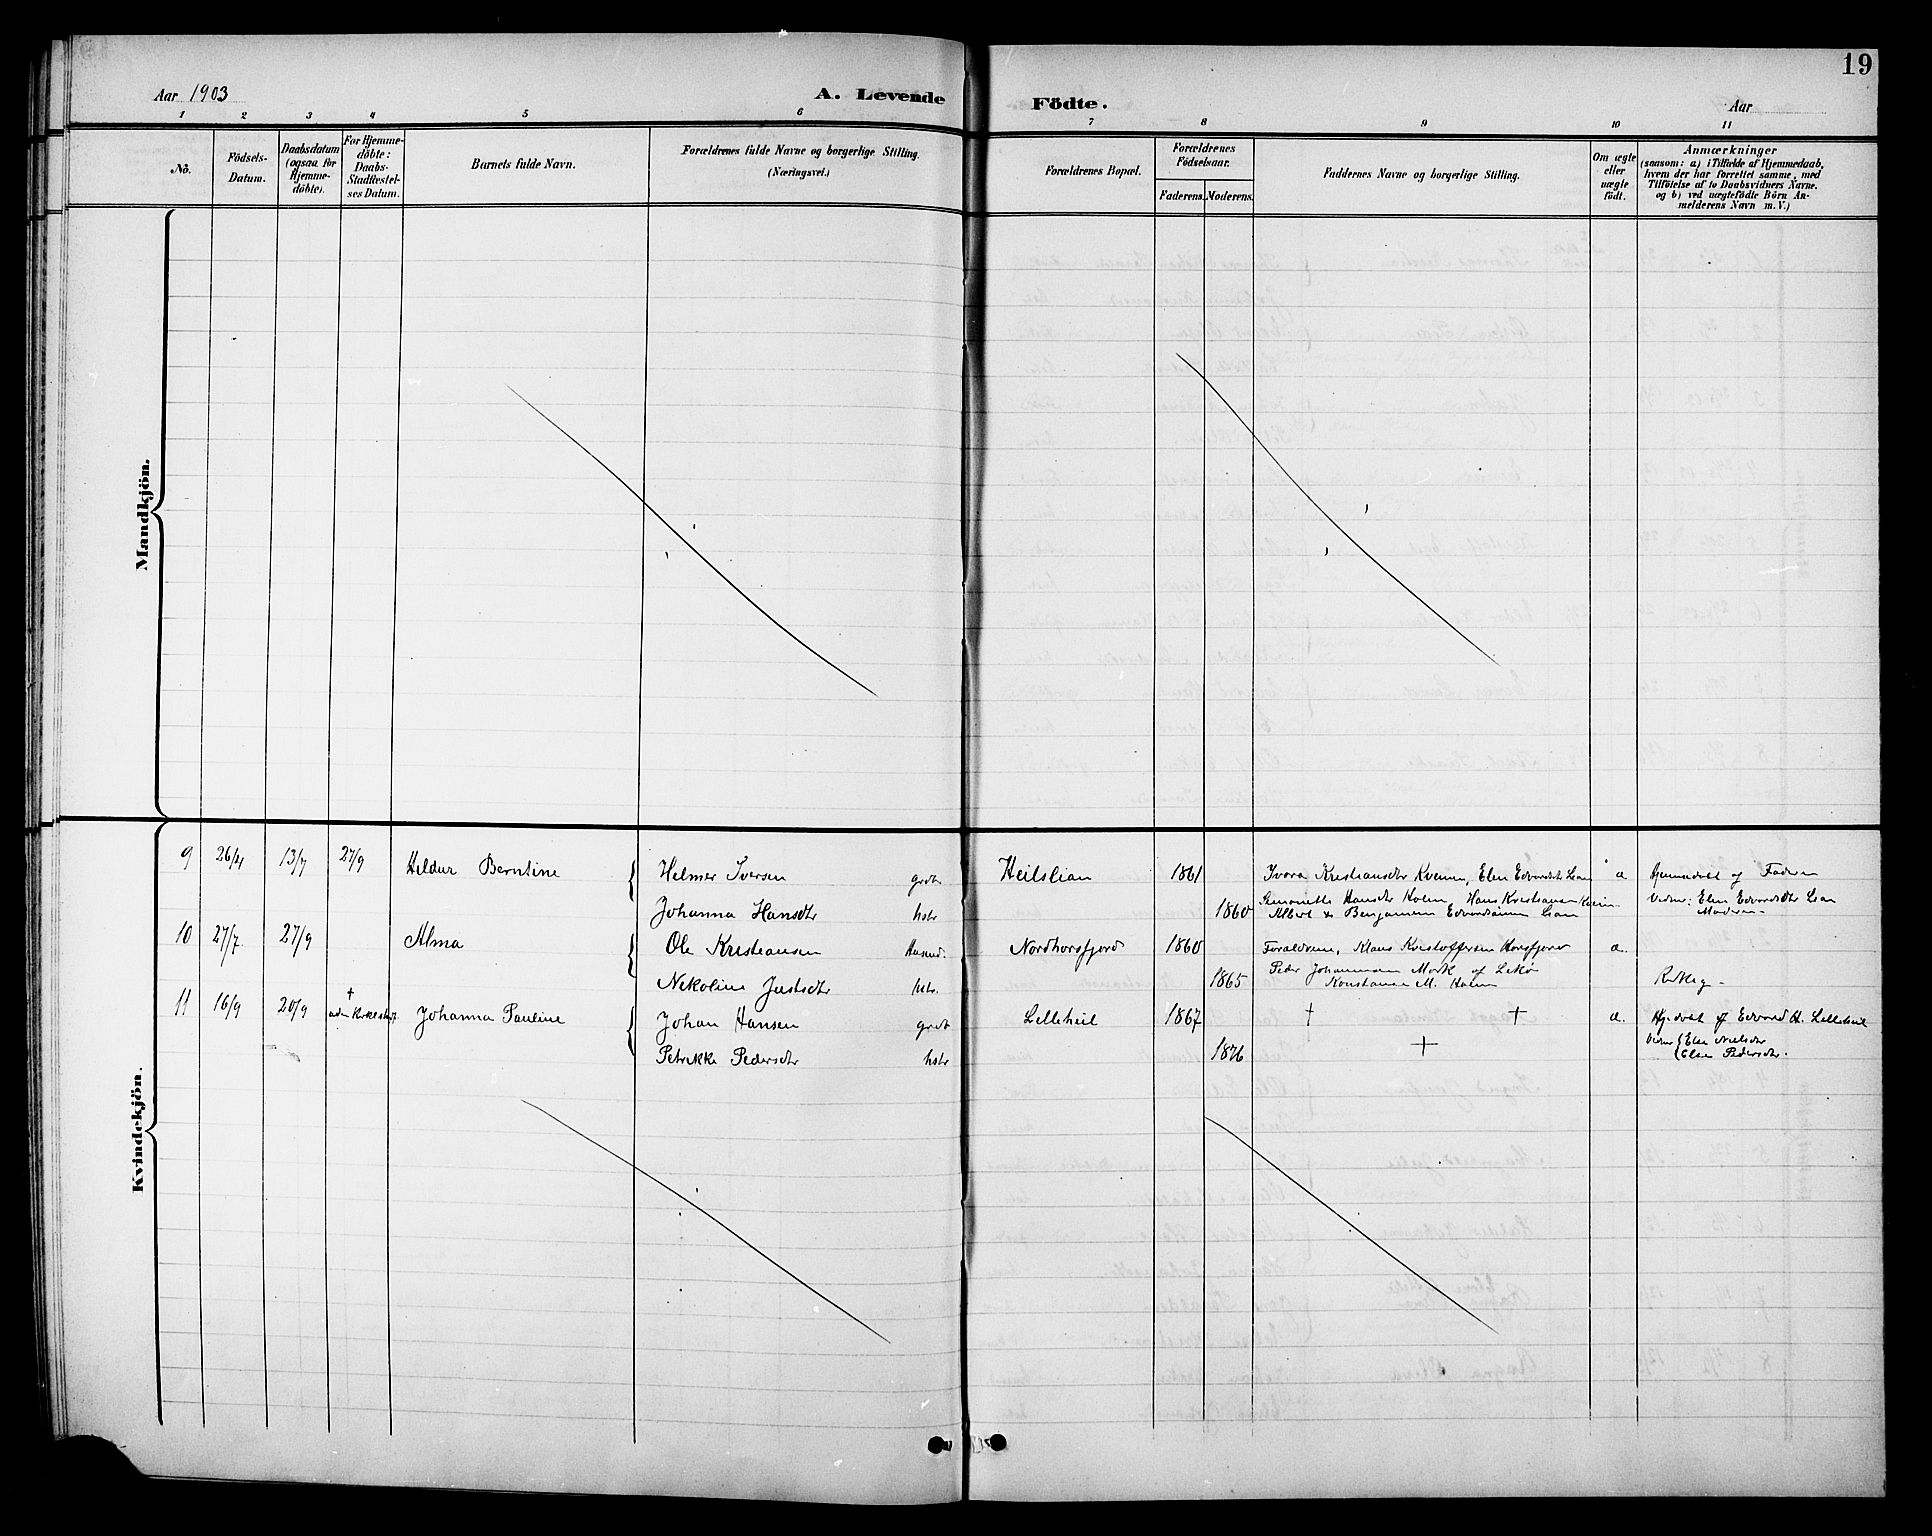 19
Aar 1903
A. Levende
Födte.
Aar
1 2 3 4 5 6 7 8 9 10 11
No.
Födsels-
Datum.
Daabsdatum
(ogsaa for
Hjemme-
döbte).
For Hjemme-
döbte:
Daabs-
Stadfæstel-
ses Datum.
Barnets fulde Navn.
Forældrenes fulde Navne og borgerlige Stilling.
(Næringsvei.)
Forældrenes Bopæl.
Forældrenes
Födselsaar.
Faderens. Moderens.
Faddernes Navne og borgerlige Stilling.
Om ægte
eller
uægte
født.
Anmærkninger
(saasom: a) i Tilfælde af Hjemmedaab,
hvem der har forrettet samme, med
Tilföielse af to Daabsvidners Navne.
og b) ved uægtefödte Börn An-
melderens Navn m. V.)
Mandkjön.
Kvindekjön.
9 26/4 13/7 27/9 Hildur Berntine Helmer Iversen grdb Heilslian 1861 Ivara Kristiansdtr Kvernn, Elen Edvardsdtr Lian a Hjemmedøbt af Faderen
Johanna Hansdtr hstr 1860 Simonette Hansdtr Holm, Hans Kristiansen Kvernn Vidner: Elen Edvardsdtr Lian
Albert & Benjamin Edvardsønner Lian Moderen
10 27/7 27/9 Alma Ole Kristiansen Husmd. Nordhorsfjord 1860 Forældrene, Klaus Kristoffersen Horsfjord a.
Nekoline Justsdtr hstr. 1865 Peder Johannesen Mork af Lekø
Konstanse M. Holm
11 16/9 20/9 † uden Kirkestadf. Johanna Pauline Johan Hansen grdb Lilleheil 1867 † † a. Hjdøbt af Edvard H. Lilleheil
Petrikke Pedersdtr hstr 1876 † Vidner Elen Nielsdtr
Elen Pedersdtr.